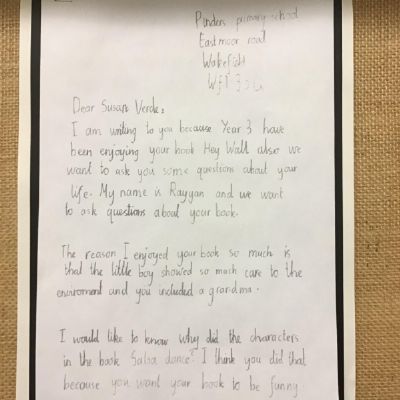 Pinders primary school
Eastmoor road
Wakefield
WF1
Dear Susan Verde,
I am writing to you because Year 3 have
been enjoying your book Hey Wall also we
want to ask you some questions about your
life. My name is Rayyan and we want
to ask questions about your book.
The reason I enjoyed your book so much is
that the little boy showed so much care to the
enviroment and you included a grandma.
I would like to know why did the characters
in the book Salsa dance? I think you did that
because you want your book to be funny